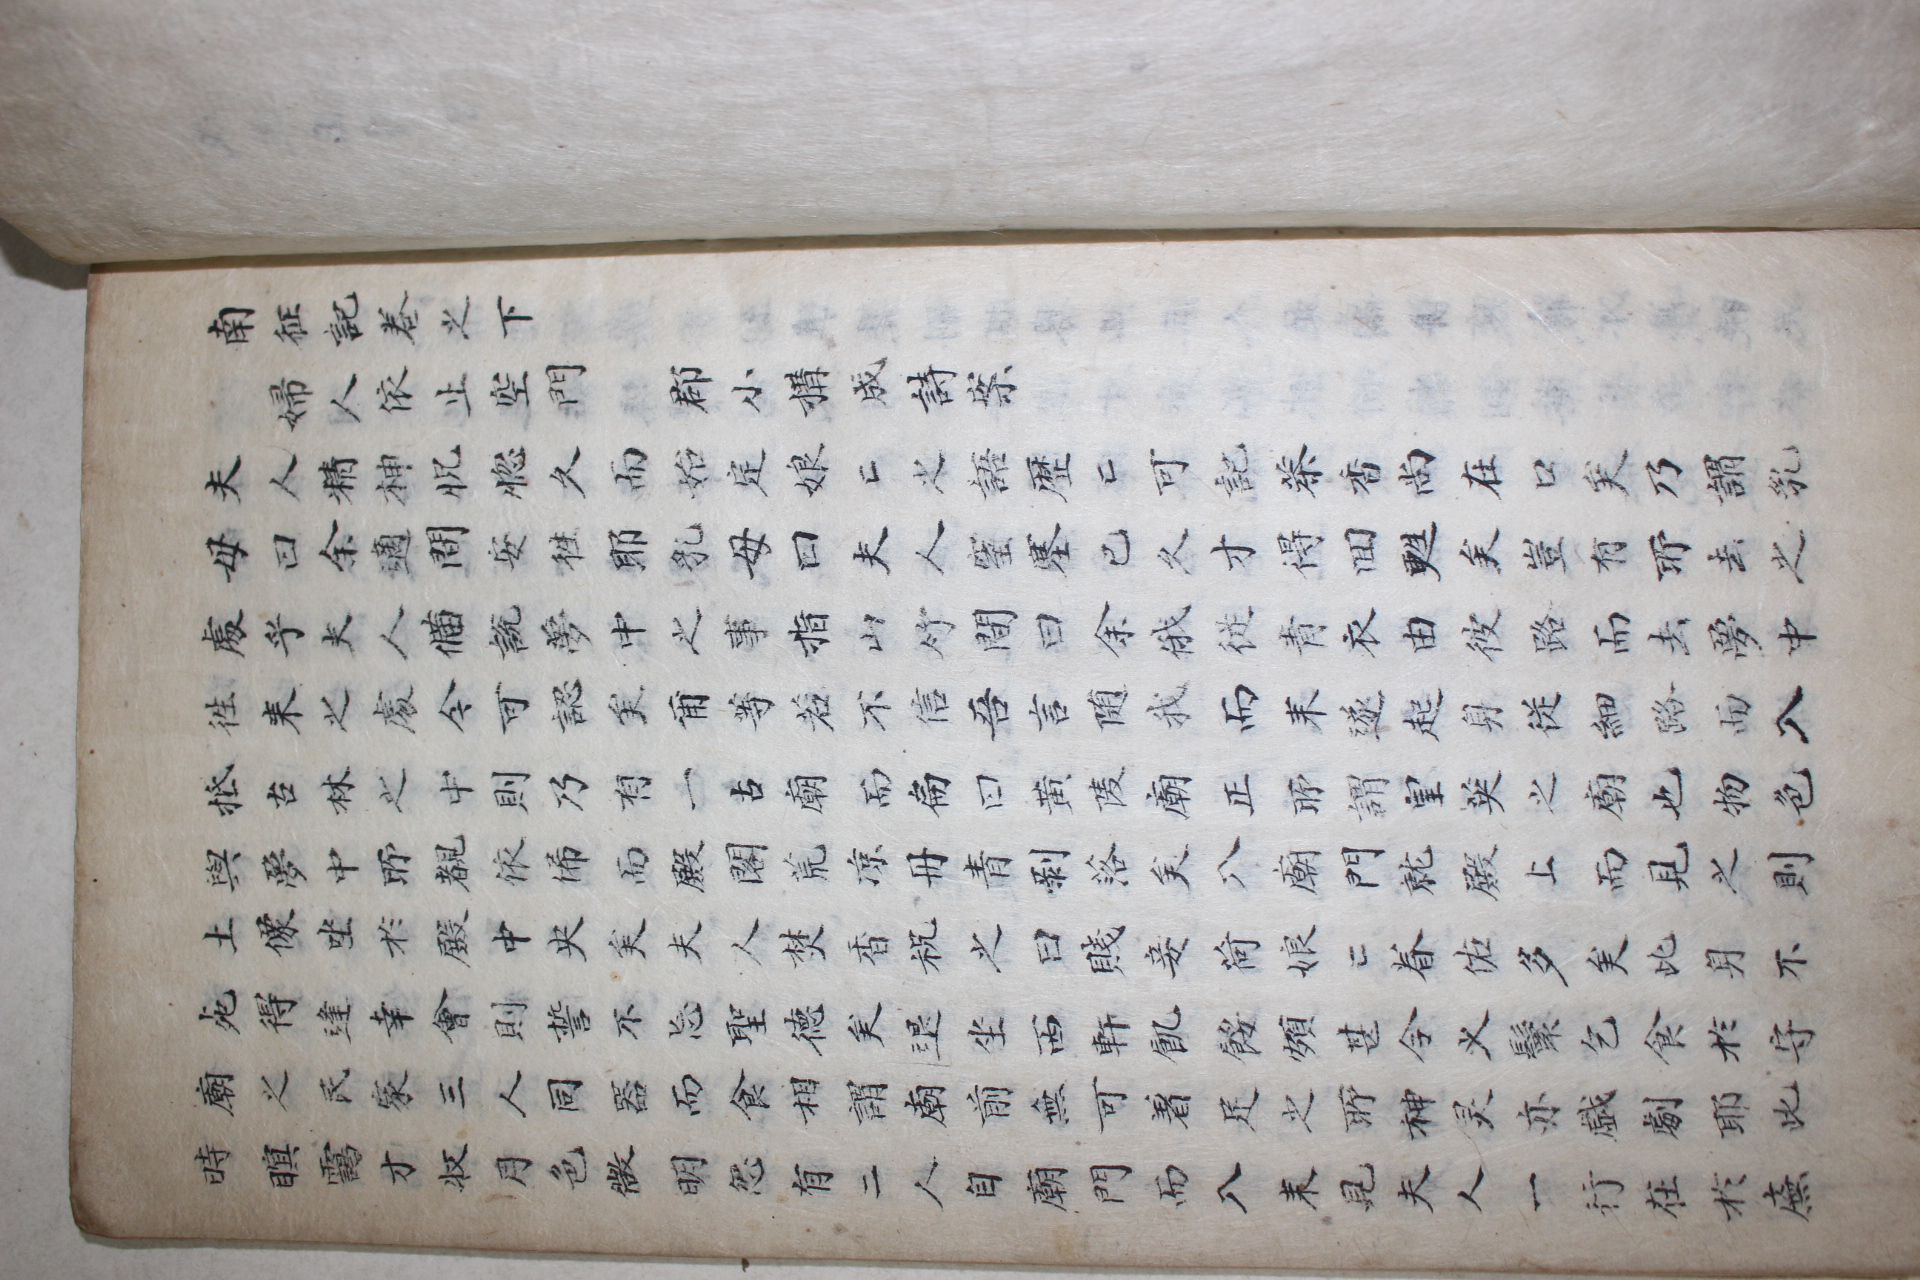 南征記卷之下
婦人依止空門 郡小構成詩案
夫人精神怳惚久而始定娘〻之語歷〻可記茶香尙在口矣乃謂乳
母曰余適間安徃耶乳母曰夫人窒塞已久才得回甦矣豈有所去之
處乎夫人備說夢中之事指山竹間曰余俄從青衣由彼路而去夢中
徃来之處今可認矣甫等若不信吾言随我而来遂起身從細路而入
抵古林之中則乃有一古廟而扁曰黃陵廟正所謂皇英之廟也物色
與夢中所覩依俙而殿閣荒凉丹青剥落矣入廟門就殿上而見之則
土像坐於殿中央矣夫人焚香祝之曰賤妾荷娘〻眷佑多矣此身不
死得逢幸會則誓不忘聖德矣退坐西軒飢餒頗甚令乂鬟乞食於守
廟之民家三人同器而食相謂廟前無可着足之所神灵亦戲劇耶此
時暝靄才收月色微明忽有二人自廟門而入来見夫人一行在於廡